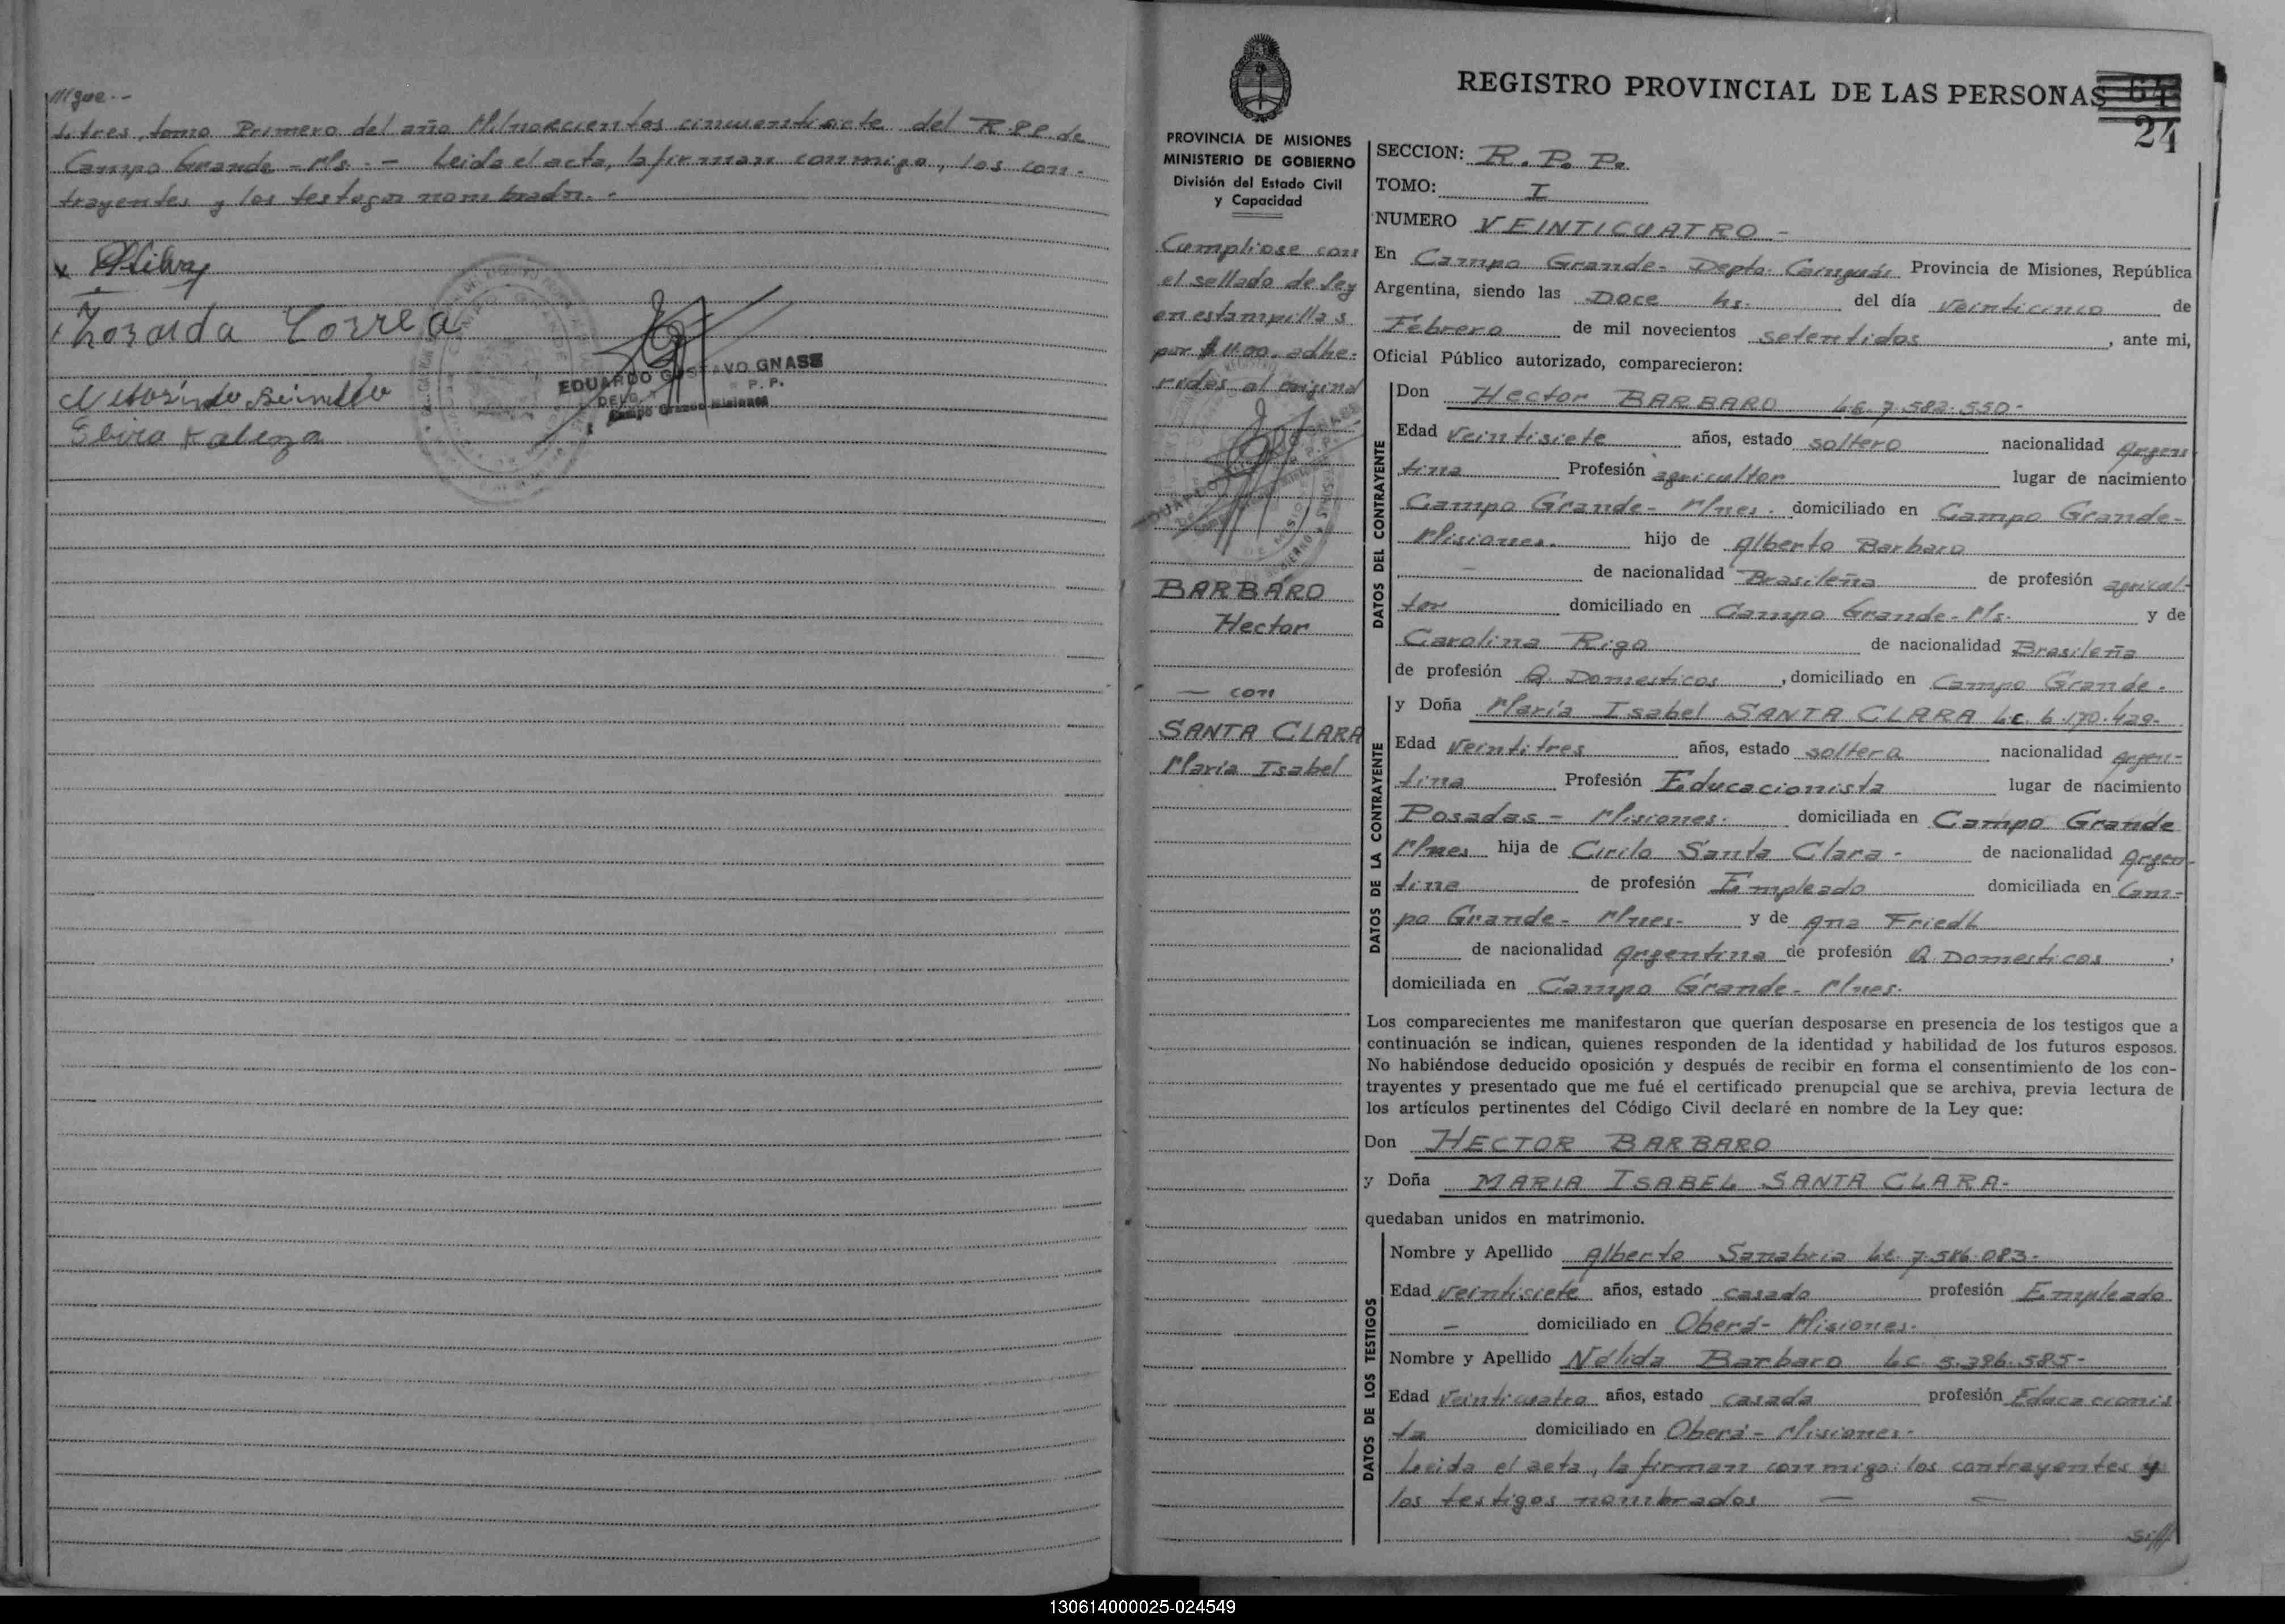 ///gue.--
titres, tomo Primero del año Milnovecientos cincuentisiete del R.P.P. de
Campo Grande - Ms. - Leida el acta, la firman conmigo, los con-
trayentes y los testigos nombrados.-
x PSilva
Zoraida Correa
EDUARDO GUSTAVO GNASS
DELG. R. P. P.
Campo Grande Misiones
REGISTRO PROVINCIAL DE LAS PERSONAS
24
PROVINCIA DE MISIONES
MINISTERIO DE GOBIERNO
División del Estado Civil
y Capacidad
Cumpliose con
el sellado de ley
en estampillas
por $ 11.00. adhe-
ridas al original
BARBARO
Hector
— con
SANTA CLARA
Maria Isabel
SECCION: R. P. P.
TOMO: I
NUMERO VEINTICUATRO -
En Campo Grande- Depto. Cainguás Provincia de Misiones, República
Argentina, siendo las Doce hs. del día veinticinco de
Febrero de mil novecientos setentidos, ante mi,
Oficial Público autorizado, comparecieron:
DATOS DEL CONTRAYENTE
Don Hector BARBARO L.E. 7.582.550-
Edad veintisiete años, estado soltero nacionalidad Argen
tina Profesión agricultor lugar de nacimiento
Campo Grande- Mnes. domiciliado en Campo Grande-
Misiones. hijo de Alberto Barbaro
- de nacionalidad Brasileña de profesión agricul-
tor domiciliado en Campo Grande- Ms. y de
Carolina Rigo de nacionalidad Brasileña
de profesión Q. Domesticos, domiciliado en Campo Grande.
DATOS DE LA CONTRAYENTE
y Doña Maria Isabel SANTA CLARA L.C. 6.170.429-
Edad veintitres años, estado soltera nacionalidad Argen-
tina Profesión Educacionista lugar de nacimiento
Posadas - Misiones. domiciliada en Campo Grande
Mnes hija de Cirilo Santa Clara - de nacionalidad Argen-
tina de profesión Empleado domiciliada en Cam-
po Grande- Mnes- y de Ana Friedl
de nacionalidad Argentina de profesión Q. Domesticos,
domiciliada en Campo Grande- Mnes.
Los comparecientes me manifestaron que querían desposarse en presencia de los testigos que a
continuación se indican, quienes responden de la identidad y habilidad de los futuros esposos.
No habiéndose deducido oposición y después de recibir en forma el consentimiento de los con-
trayentes y presentado que me fué el certificado prenupcial que se archiva, previa lectura de
los artículos pertinentes del Código Civil declaré en nombre de la Ley que:
Don HECTOR BARBARO
y Doña MARIA ISABEL SANTA CLARA-
quedaban unidos en matrimonio.
DATOS DE LOS TESTIGOS
Nombre y Apellido Alberto Sanabria L.E. 7.586.083-
Edad veintisiete años, estado casado profesión Empleado
- domiciliado en Oberá- Misiones.
Nombre y Apellido Nélida Barbaro L.C. 5.396.585-
Edad Veinticuatro años, estado casada profesión Educacionis
ta domiciliado en Oberá- Misiones-
Leida el acta, la firman conmigo: los contrayentes y
los testigos nombrados — —
130614000025-024549